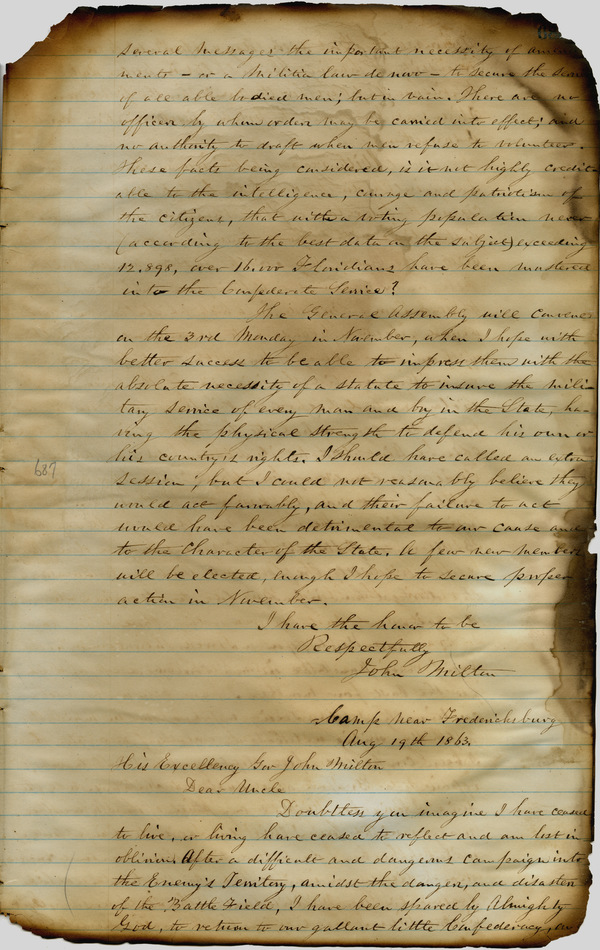 several messages the important necessity of amend-
ments - or a Militia law de novo - to secure the service
of all able bodied men; but in vain. There are no
officers by whom orders may be carried into effect; and
no authority to draft when men refuse to volunteer.
These facts being considered, is it not highly credit-
able to the intelligence, courage and patriotism of
the citizens, that with a voting population never
(according to the best data on the subject) exceeding
12,898, over 16,000 Floridians have been mustered
into the Confederate Service?
The General Assembly will convene
on the 3rd Monday in November, when I hope with
better success to be able to impress them with the
absolute necessity of a statute to insure the mili-
tary service of every man and boy in the State, ha-
ving the physical strength to defend his own or
his country's rights. I should have called an extra
session, but I could not reasonably believe they
would act favorably, and their failure to act
would have been detrimental to our cause and
to the Character of the State. A few new members
will be elected, enough I hope to secure proper
action in November.
I have the honor to be
Respectfully
John Milton
687
Camp near Fredericksburg
Aug 19th 1863.
His Excellency Gov John Milton
Dear Uncle
Doubtless you imagine I have ceased
to live, or living have ceased to reflect and am lost in
oblivion. After a difficult and dangerous campaign into
the Enemy's Territory, amidst the danger, and disaster
of the Battle Field, I have been spared by Almighty
God, to return to our gallant little Confederacy,